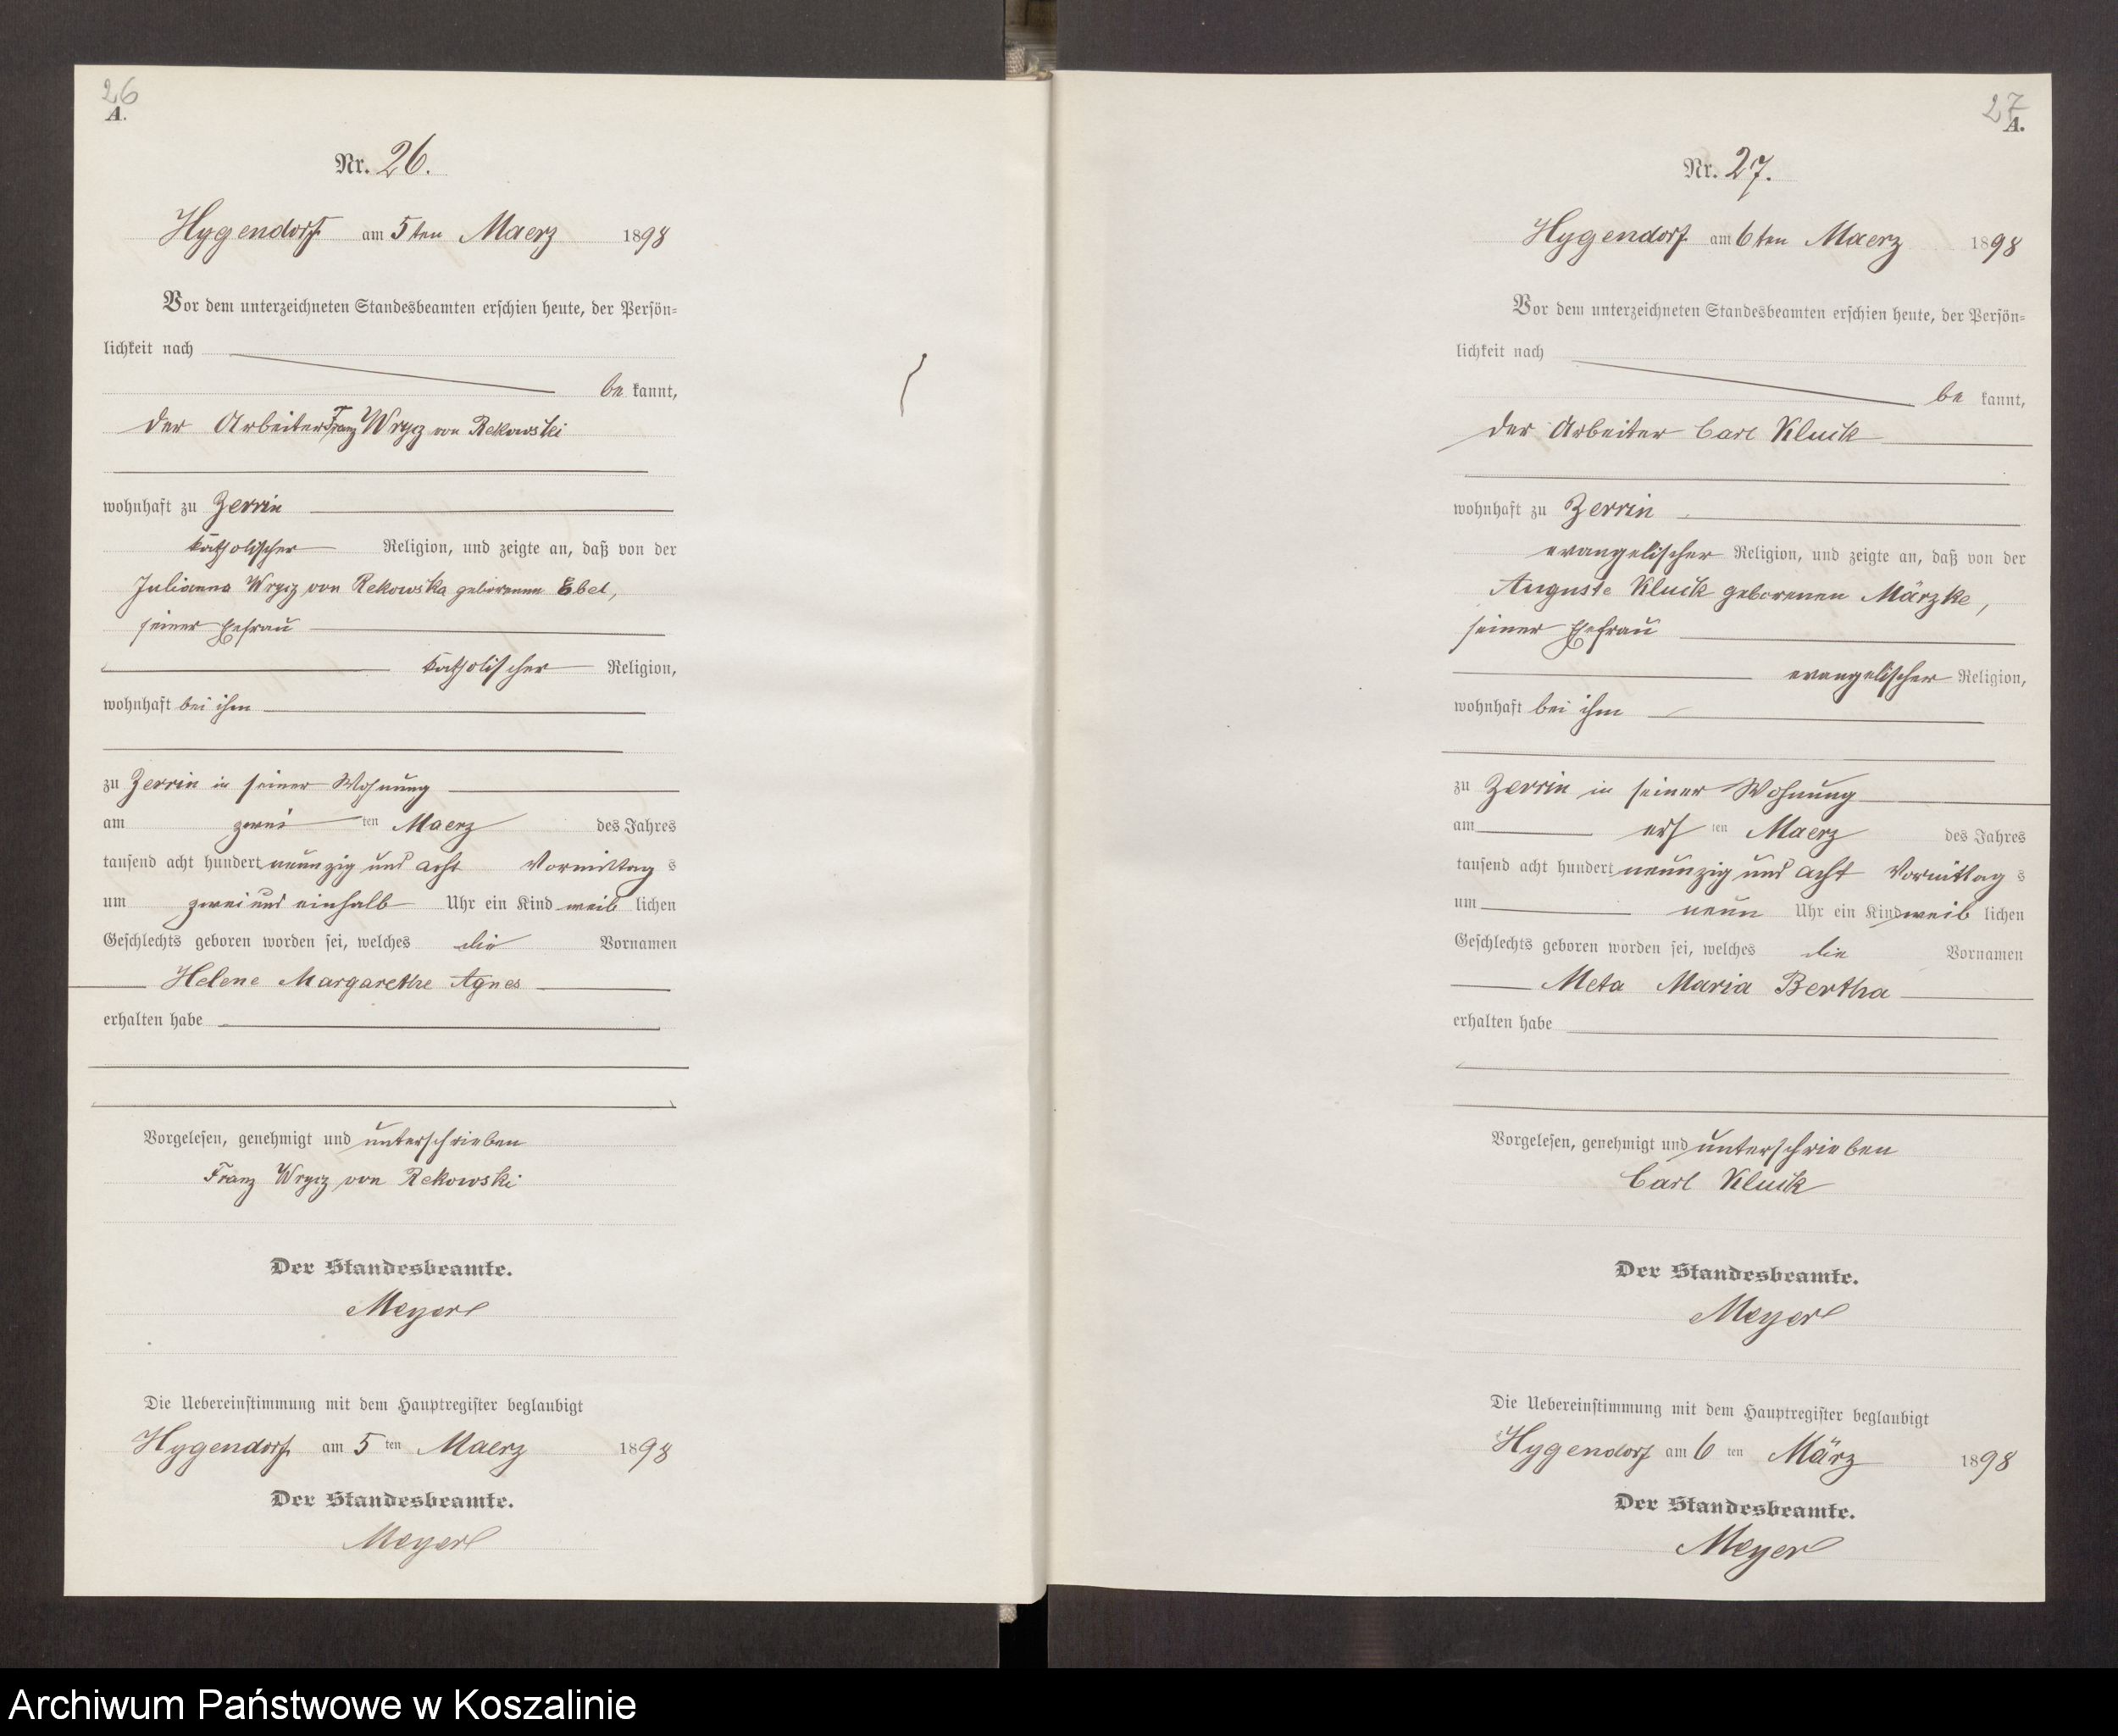 26
A.
Nr. 26.
Hygendorf am 5ten Maerz 1898
Vor dem unterzeichneten Standesbeamten erschien heute, der Persön=
lichkeit nach
be kannt,
der Arbeiter Franz Wrycz von Rekowski
wohnhaft zu Zerrin
katholischer Religion, und zeigte an, daß von der
Julianna Wrycz von Rekowska geborenen Ebel,
seiner Ehefrau
katholischer Religion,
wohnhaft bei ihm
zu Zerrin in seiner Wohnung
am zwei ten Maerz des Jahres
tausend acht hundert neunzig und acht Vormittag s
um zwei und einhalb Uhr ein Kind weib lichen
Geschlechts geboren worden sei, welches die Vornamen
Helene Margarethe Agnes
erhalten habe
Vorgelesen, genehmigt und unterschrieben
Franz Wrycz von Rekowski
Der Standesbeamte.
Meyer
Die Uebereinstimmung mit dem Hauptregister beglaubigt
Hygendorf am 5 ten Maerz 1898
Der Standesbeamte.
Meyer
27
A.
Nr. 27.
Hygendorf am 6ten Maerz 1898
Vor dem unterzeichneten Standesbeamten erschien heute, der Persön=
lichkeit nach
be kannt,
der Arbeiter Carl Kluck
wohnhaft zu Zerrin
evangelischer Religion, und zeigte an, daß von der
Auguste Kluck geborenen Märzke,
seiner Ehefrau
evangelischer Religion,
wohnhaft bei ihm
zu Zerrin in seiner Wohnung
am erst ten Maerz des Jahres
tausend acht hundert neunzig und acht Vormittag s
um neun Uhr ein Kind weib lichen
Geschlechts geboren worden sei, welches die Vornamen
Meta Maria Bertha
erhalten habe
Vorgelesen, genehmigt und unterschrieben
Carl Kluck
Der Standesbeamte.
Meyer
Die Uebereinstimmung mit dem Hauptregister beglaubigt
Hygendorf am 6 ten März 1898
Der Standesbeamte.
Meyer
Archiwum Państwowe w Koszalinie